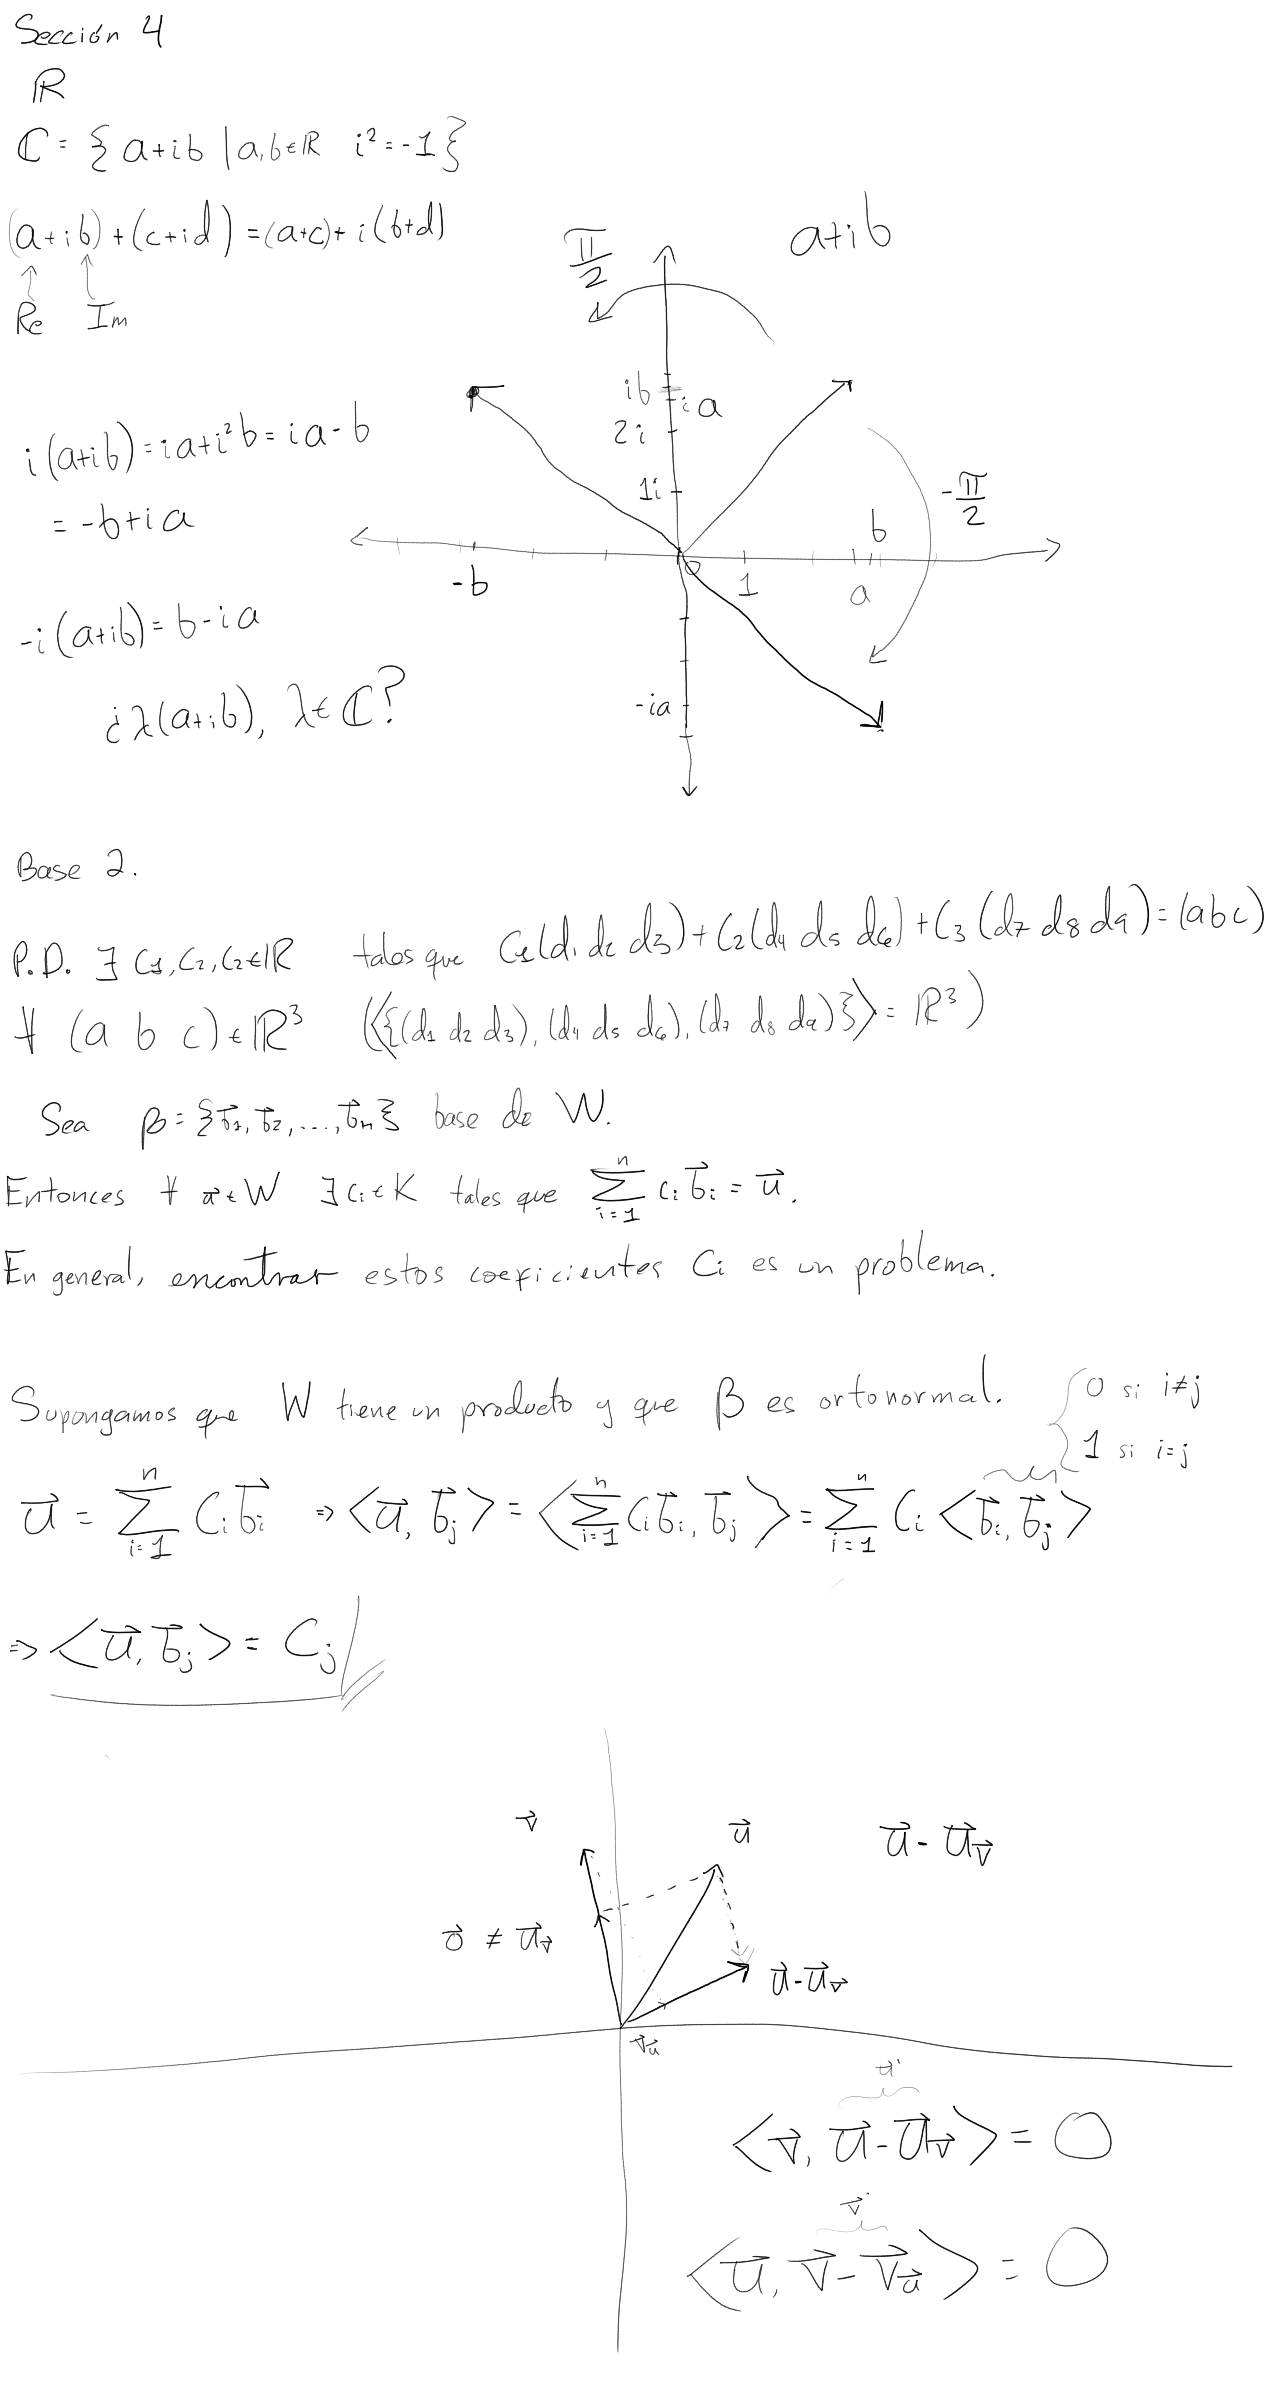 Sección 4
ℝ
ℂ = { a+ib | a,b∈ℝ i² = -1}
(a+ib) + (c+id) = (a+c) + i(b+d)
Re Im
a+ib
π/2
ib
ia
2i
1i
-π/2
b
-b
0
1
a
-ia
i(a+ib) = ia+i²b = ia-b
= -b+ia
-i(a+ib) = b-ia
¿λ(a+ib), λ∈ℂ?
Base 2.
P.D. ∃ C₁, C₂, C₂∈ℝ tales que C₁(d₁ d₂ d₃) + C₂(d₄ d₅ d₆) + C₃(d₇ d₈ d₉) = (a b c)
∀ (a b c)∈ℝ³ (⟨{(d₁ d₂ d₃), (d₄ d₅ d₆), (d₇ d₈ d₉)}⟩ = ℝ³)
Sea β = {b⃗₁, b⃗₂, ..., b⃗ₙ} base de W.
Entonces ∀ u⃗∈W ∃ cᵢ∈K tales que ∑ᵢ₌₁ⁿ cᵢ b⃗ᵢ = u⃗.
En general, encontrar estos coeficientes Cᵢ es un problema.
Supongamos que W tiene un producto y que β es ortonormal.
{ 0 si i≠j
1 si i=j
u⃗ = ∑ᵢ₌₁ⁿ Cᵢ b⃗ᵢ ⇒ ⟨u⃗, b⃗ⱼ⟩ = ⟨∑ᵢ₌₁ⁿ Cᵢ b⃗ᵢ, b⃗ⱼ⟩ = ∑ᵢ₌₁ⁿ Cᵢ ⟨b⃗ᵢ, b⃗ⱼ⟩
⇒ ⟨u⃗, b⃗ⱼ⟩ = Cⱼ
v⃗
u⃗
u⃗ - u⃗_v⃗
0⃗ ≠ u⃗_v⃗
u⃗ - u⃗_v⃗
v⃗_u⃗
u⃗'
⟨v⃗, u⃗ - u⃗_v⃗⟩ = 0
v⃗'
⟨u⃗, v⃗ - v⃗_u⃗⟩ = 0